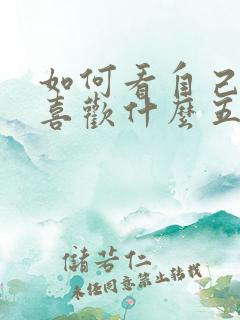 如何看自己
喜歡什麼五
儲若仁
未經同意禁止轉載